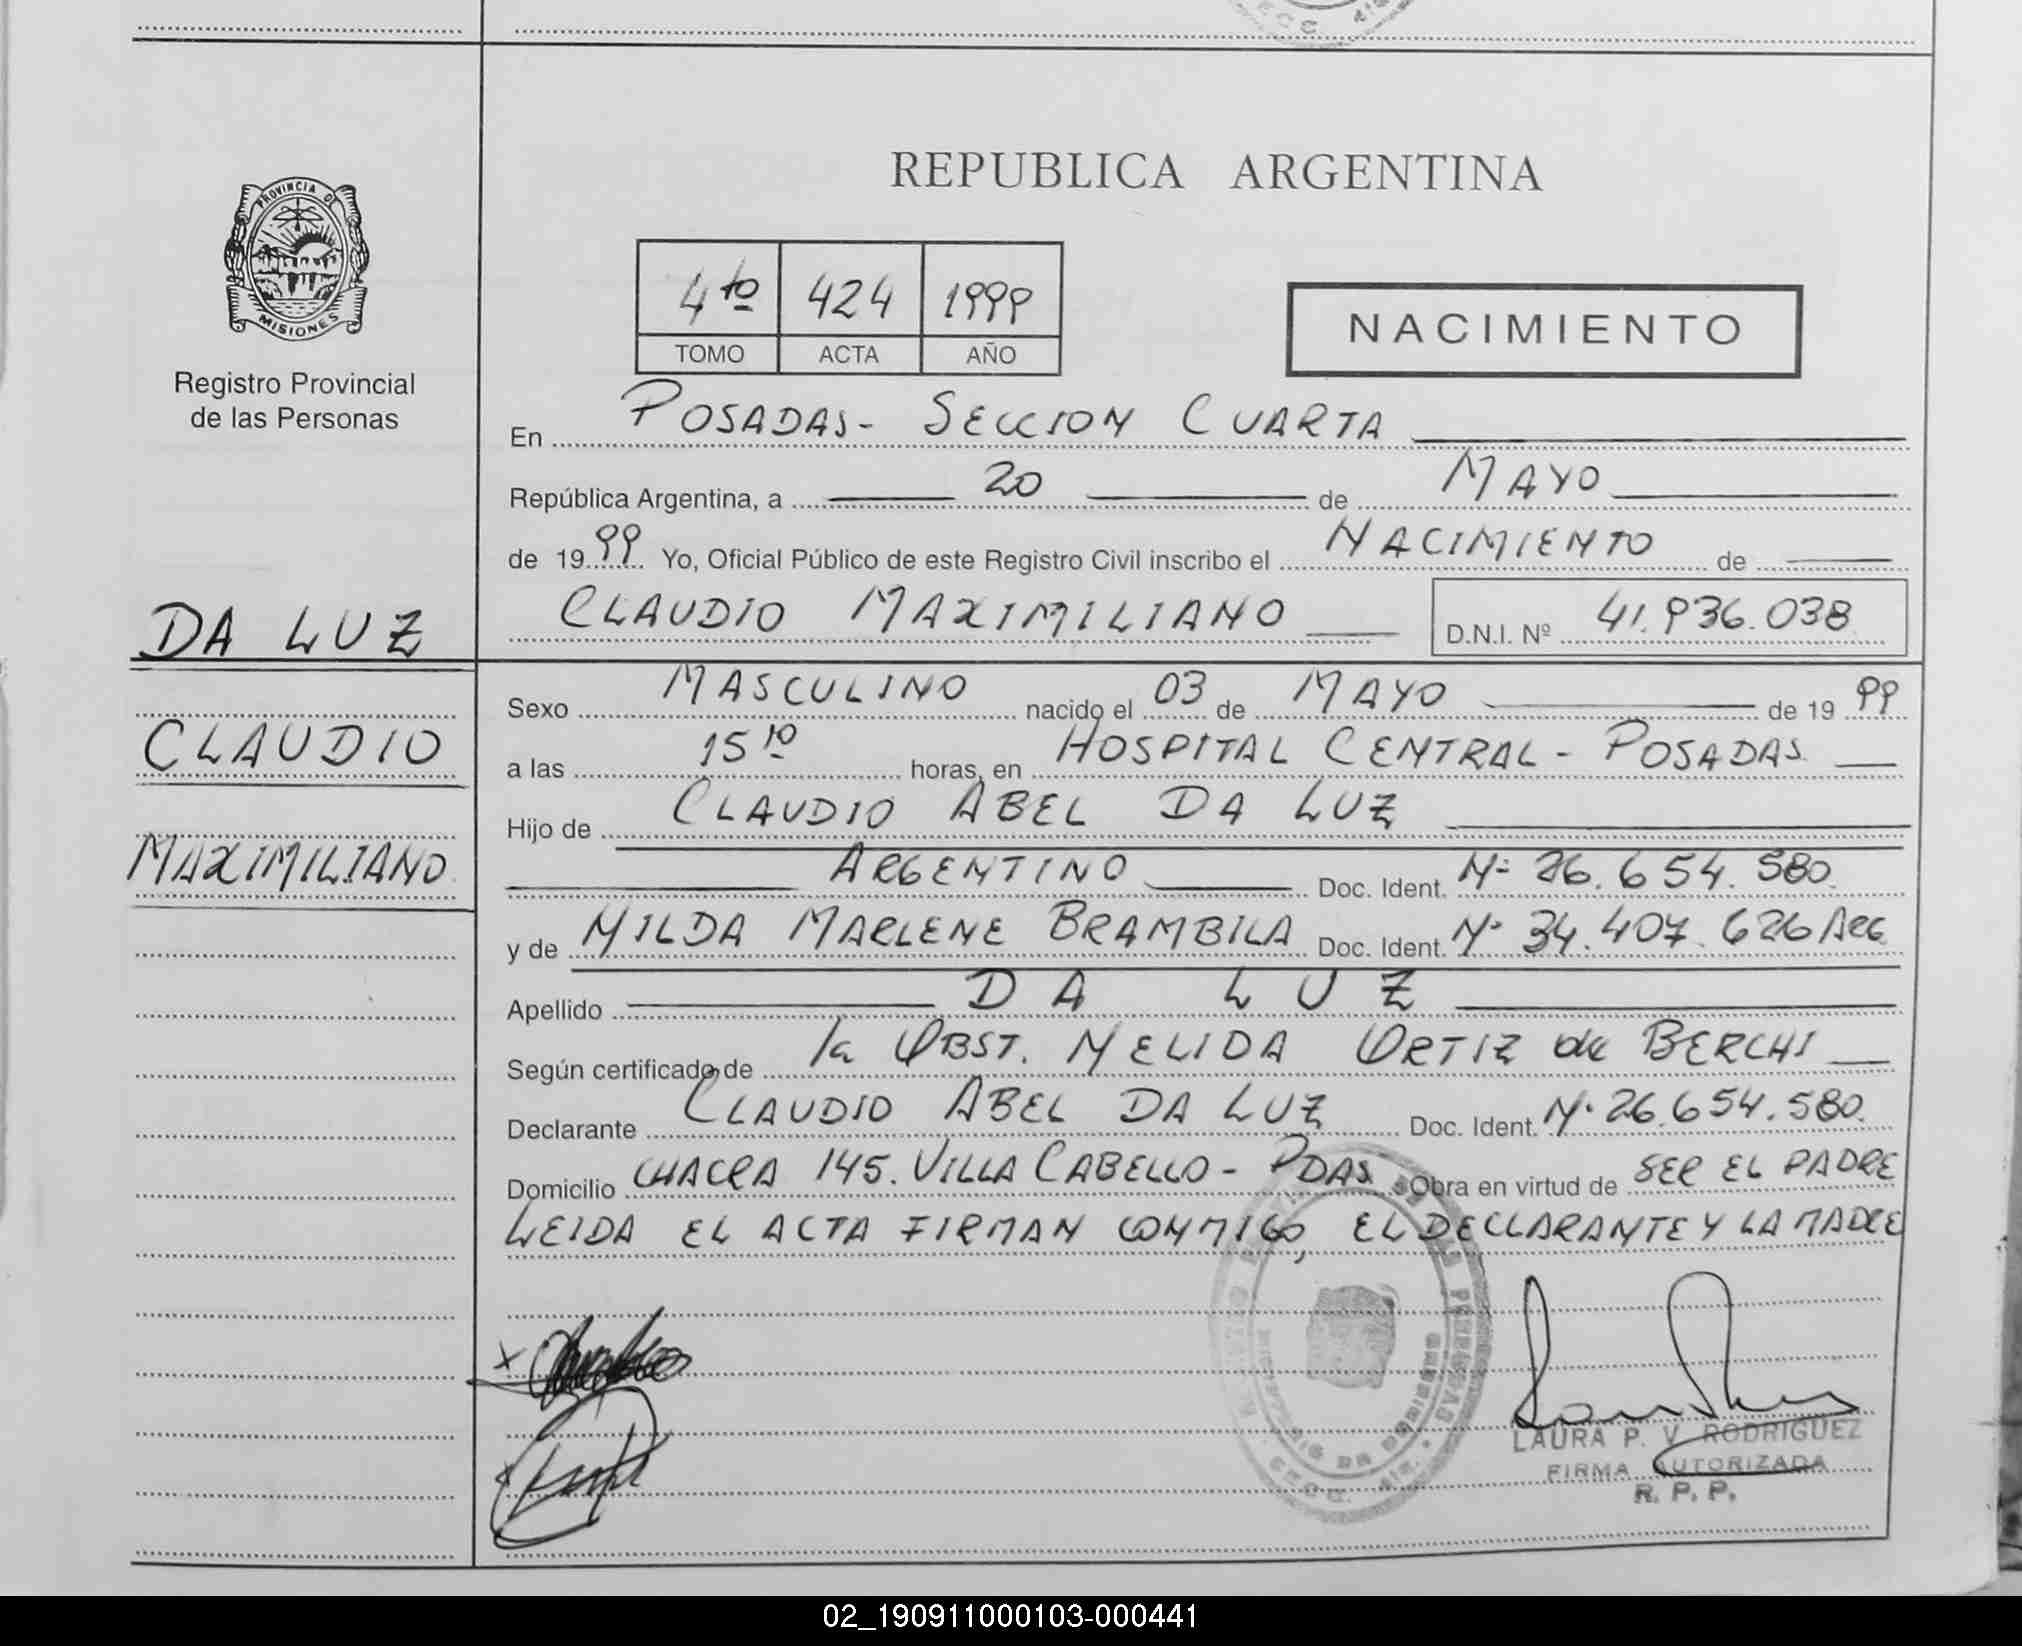 PROVINCIA DE
MISIONES
Registro Provincial
de las Personas
DA LUZ
CLAUDIO
MAXIMILIANO
REPUBLICA ARGENTINA
4to 424 1999
TOMO ACTA AÑO
NACIMIENTO
En POSADAS - SECCION CUARTA
República Argentina, a 20 de MAYO
de 1999 Yo, Oficial Público de este Registro Civil inscribo el NACIMIENTO de
CLAUDIO MAXIMILIANO D.N.I. Nº 41.936.038
Sexo MASCULINO nacido el 03 de MAYO de 1999
a las 15 10 horas, en HOSPITAL CENTRAL - POSADAS
Hijo de CLAUDIO ABEL DA LUZ
ARGENTINO Doc. Ident. Nº 26.654.580.
y de NILDA MARLENE BRAMBILA Doc. Ident. Nº 34.407.626 ARG
Apellido DA LUZ
Según certificado de la OBST. NELIDA ORTIZ de BERCHI
Declarante CLAUDIO ABEL DA LUZ Doc. Ident. Nº 26.654.580.
Domicilio CHACRA 145. VILLA CABELLO - PDAS. Obra en virtud de SER EL PADRE
LEIDA EL ACTA FIRMAN CONMIGO, EL DECLARANTE Y LA MADRE
LAURA P. V. RODRIGUEZ
FIRMA AUTORIZADA
R. P. P.
02_190911000103-000441